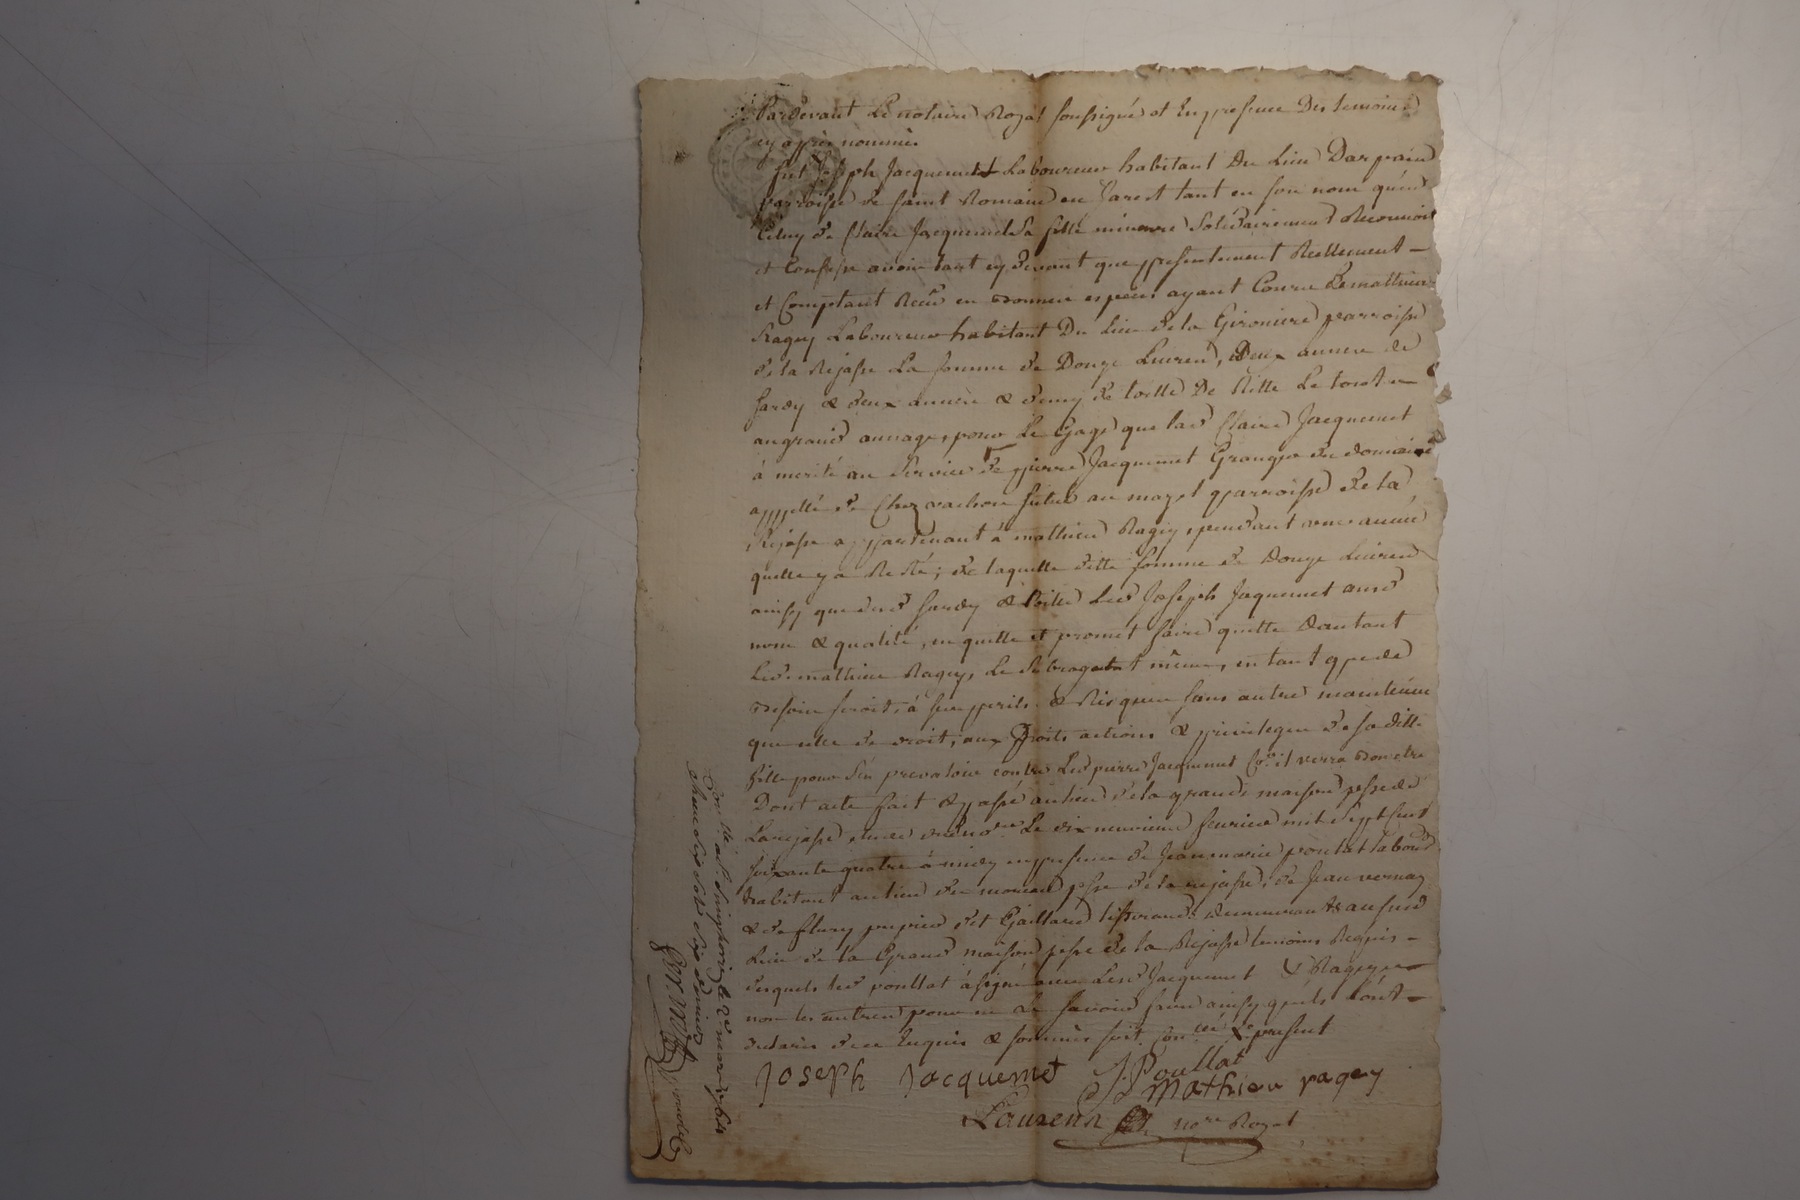 Pardevant Le notaire Royal soussigné et En presence Des temoins
cy après nommés
fut Joseph Jacquemet Laboureur habitant du Lieu Darpain
parroisse de saint Romain en Jarest tant en son nom qu'en
Celuy de Claire Jacquemet sa fille mineure solidairement Reconnoit
et Confesse avoir tant cy devant que presentement Reellement
et Comptant Receu en bonnes especes ayant Cours De mathieu
Ragey Laboureur habitant Du Lieu de la Gironiere parroisse
de la Rejasse La somme de Douze Livres, Deux aunes de
sardy & deux aunes & demy de toille De Ritte Le tout
au grand aunage, pour Le Gage que lad Claire Jacquemet
à merité au service de pierre Jacquemet Granger du domaine
appellé de Chez vachon situé au mazel parroisse de la
Rejasse appartenant à mathieu Ragey, pendant une année
quelle y a Resté; de laquelle ditte somme de Douze Livres
ainsy que desd sardy & toille Led Joseph Jaquemet ausd
nom & qualité, en quitte et promet faire quitte dautant
Led. mathieu Ragey, Le subrogeant même, en tant que de
besoin seroit, à ses perils & Risques sans autre maintenue
que celle de droit, aux Droits actions & privileges de sa ditte
fille pour s'en prevaloir contre Led pierre Jacquemet Co.e il verra bon etre
Dont acte fait & passé au lieu de la grande maison psse de
Larejasse etude dud no.re Le dix neuvieme fevrier mil sept cent
soixante quatre à midy en presence de Jean marie poullat Labour
habitant au lieu de morean psse de la rejasse, de Jean vernay
& de fleury dit Gaillard tisserands demeurants ausud
Lieu de la Grand maison psse de la Rejasse temoins Requis
desquels led poullat à signé avec Lesd Jacquemet & Ragey, et
non les autres pour ne Le savoir faire ainsy qu'ils l'ont
declarés de ce Enquis & sommés soit Con.llé Le present
Joseph Jacquemet J. Poullat
Mathieu ragey
Laurenson no.re Royal
Con.llé à St Simphorien le 2e mars 1764